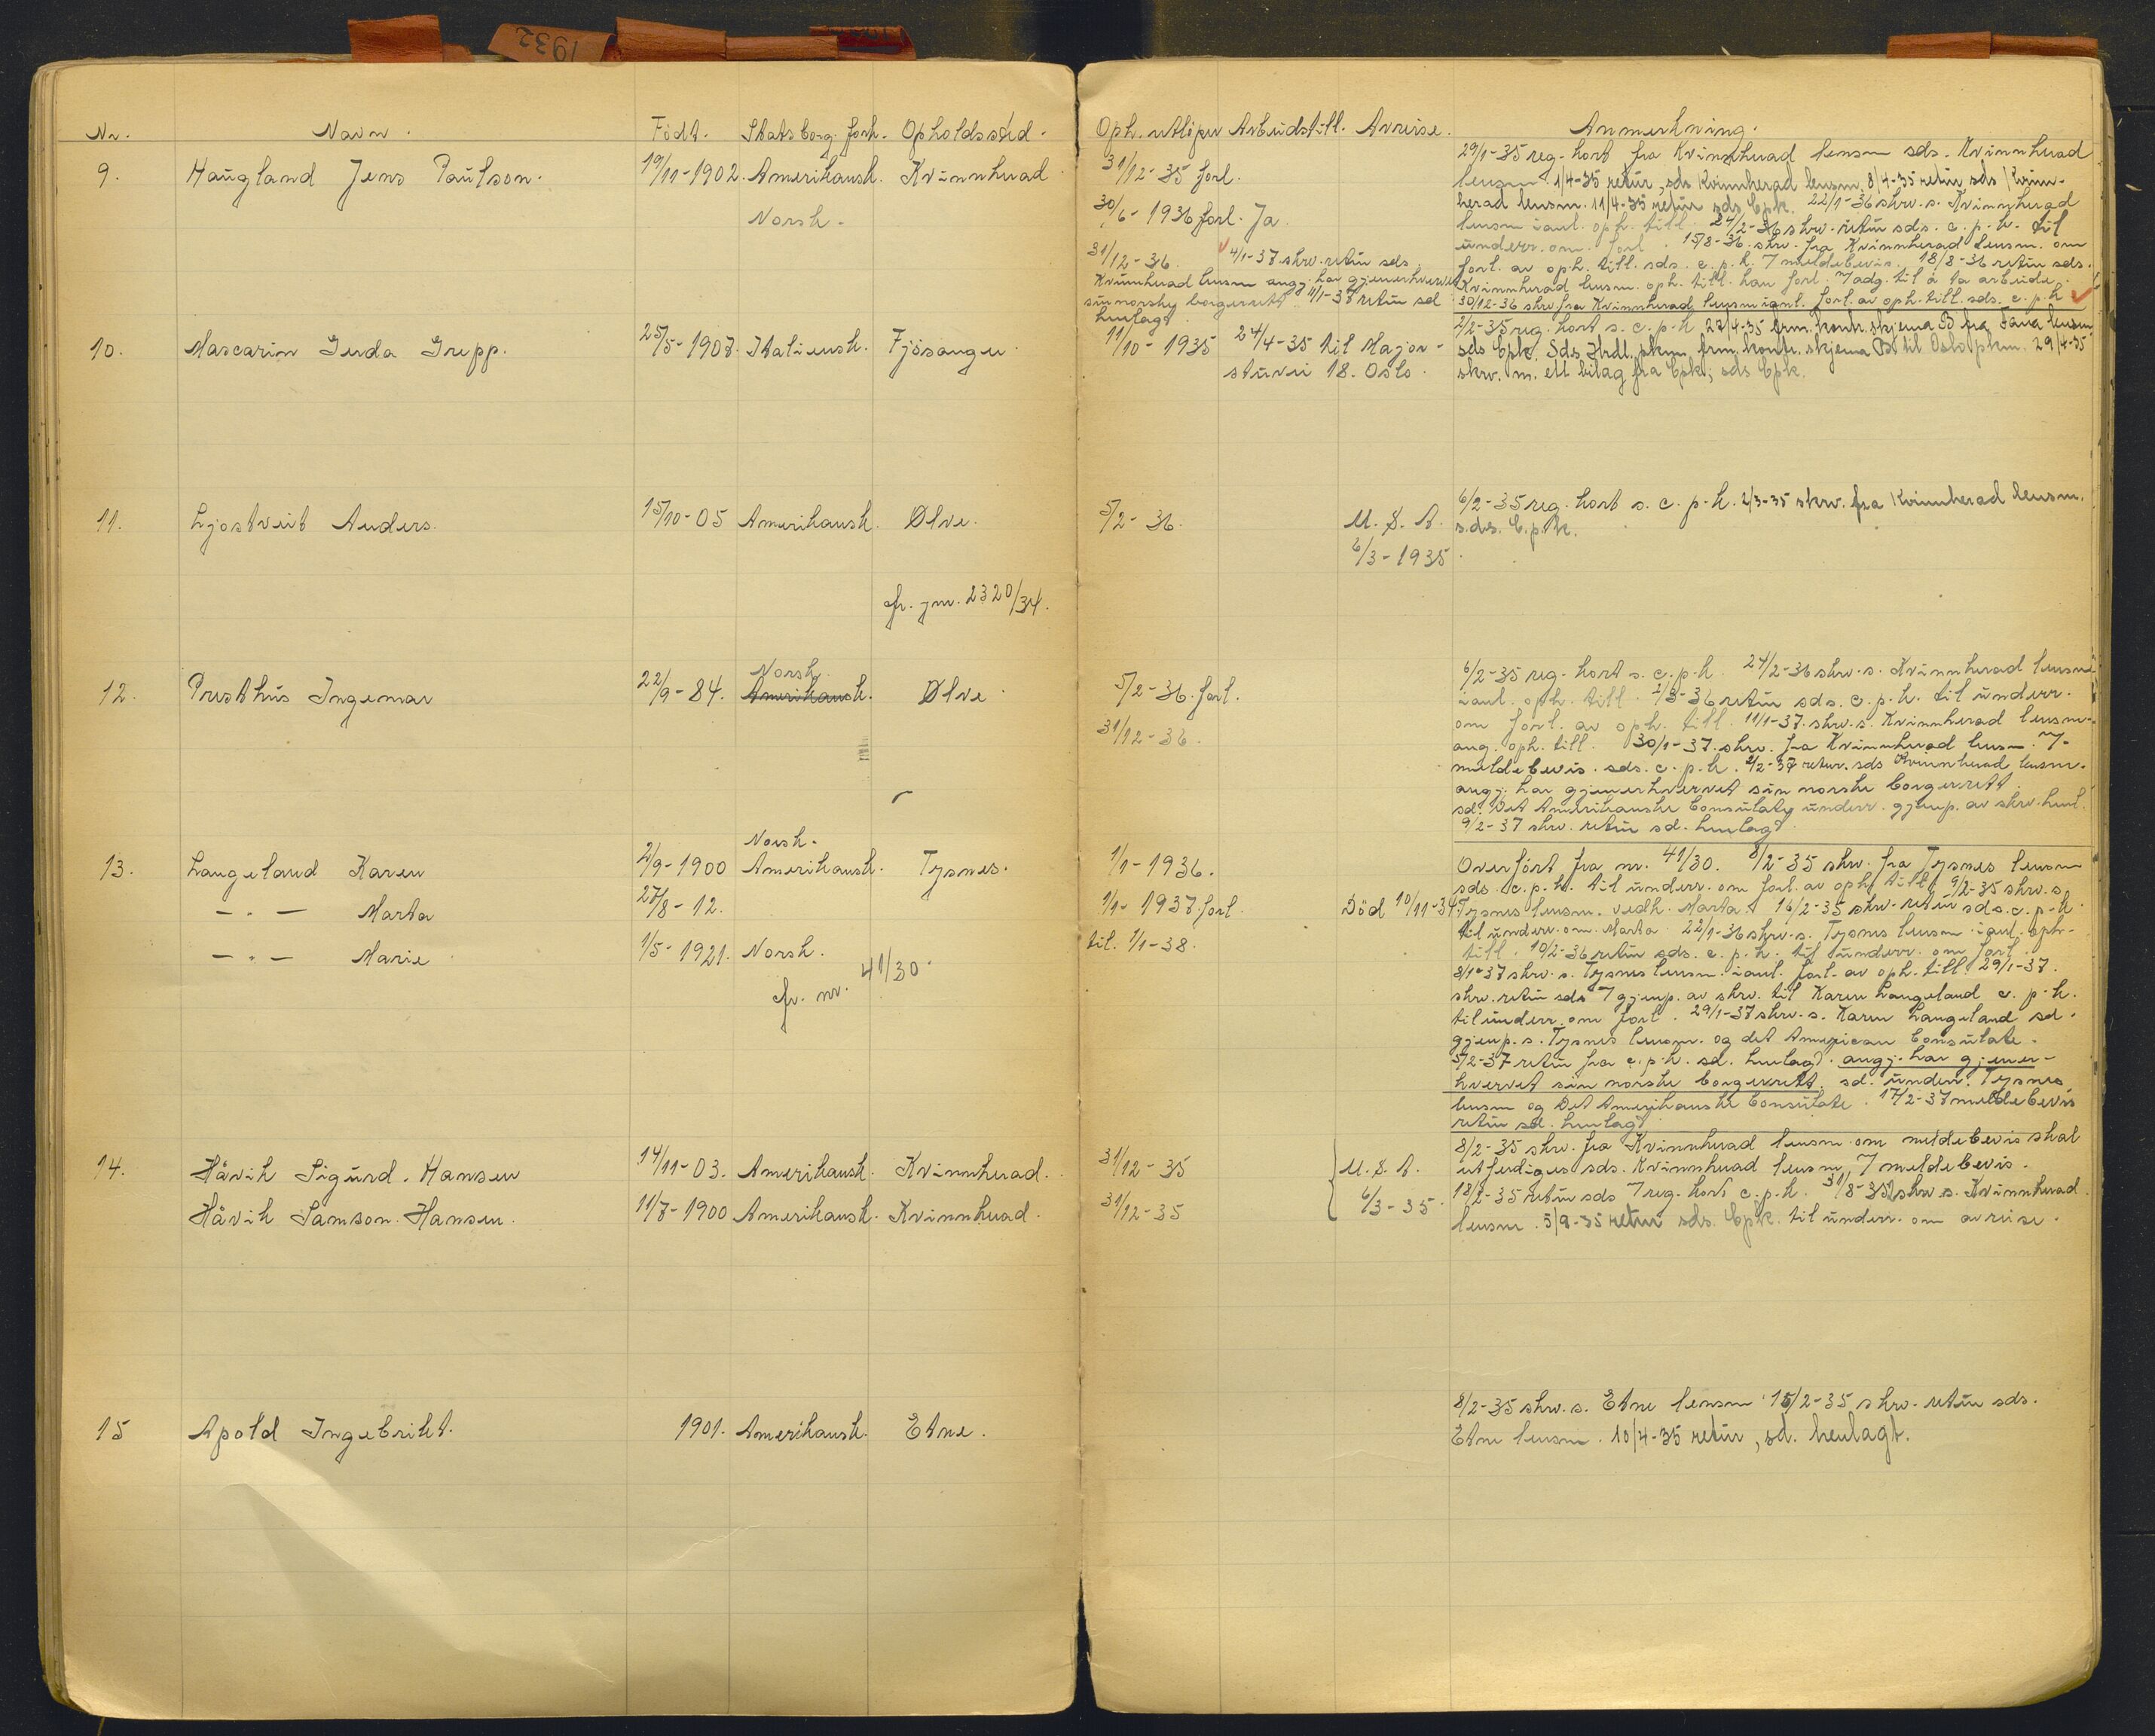 1932
Nr. Navn. Födt. Statsborg. forh. Opholdssted.
9. Haugland Jens Paulson. 19/11-1902. Amerikansk. Kvinnherad
Norsk.
10. Mascarin Gerda Grepp. 25/5-1907. Italiensk. Fjösanger.
11. Ljostveit Anders. 15/10-05 Amerikansk. Ølve.
cfr. jnr. 2320/34.
Norsk.
12. Presthus Ingemar 22/9-84. Amerikansk. Ølve.
Norsk.
13. Langeland Karen 2/9-1900 Amerikansk. Tysnes.
-"- Marta 27/8-12.
-"- Marie 1/5-1921. Norsk.
cfr. nr. 41/30.
14. Håvik Sigurd. Hansen 14/11-03. Amerikansk. Kvinnherad.
Håvik Samson. Hansen. 11/7-1900 Amerikansk. Kvinnherad.
15 Apold Ingebrikt. 1901. Amerikansk. Etne.
Oph. utlöper Arbeidstill. Avreise. Anmerkning.
31/12-35 forl.
30/6-1936 forl. Ja.
31/12-36. 4/1-37. skrv. retur sds.
Kvinnherad lensm angj. har gjenerhvervet
sin norske borgerrett 11/1-37 retur sd.
henlagt.
29/1-35 reg. kort fra Kvinnherad lensm sds. Kvinnherad
lensm. 1/4-35 retur, sds Kvinnherad lensm. 8/4-35 retur sds Kvinn-
herad lensm. 11/4-35 retur sds Cpk. 22/1-36 skrv. s. Kvinnherad
lensm ianl. oph. till. 24/2-36 skrv. retur sds. c. p. k. til
underr. om forl. 15/8-36. skrv. fra Kvinnherad lensm. om
forl. av oph. till. sds. c. p. k. 7 meldebevis. 18/8-36 retur sds.
Kvinnherad lensm. oph. till. kan forl. 7 adg. til å ta arbeide.
30/12-36 skrv. fra Kvinnherad lensm ianl. forl. av oph. till. sds. c. p. k
11/10-1935 24/4-35 til Major-
stuvei 18. Oslo.
2/2-35 reg. kort s. c. p. k. 23/4-35 frm. kontr. skjema B fra Fana lensm
sds Cpk. Sds Hrdl. pkm frm. kontr. skjema B til Oslo pkm. 29/4-35
skrv. m. ett bilag fra Cpk; sds Cpk.
5/2-36. U. S. A.
6/3-1935.
6/2-35 reg. kort s. c. p. k. 2/3-35 skrv. fra Kvinnherad lensm.
s.ds. C.p.k.
5/2-36. forl.
31/12-36.
6/2-35 reg. kort s. c. p. k. 24/2-36 skrv. s. Kvinnherad lensm
ianl. oph. till. 2/3-36 retur sds. c. p. k. til underr.
om forl. av oph. till. 11/1-37. skrv. s. Kvinnherad lensm.
ang. oph. till. 30/1-37. skrv. fra Kvinnherad lensm. 7-
meldebevis. sds. c. p. k. 2/2-37 retur. sds Kvinnherad lensm.
angj. har gjenerhvervet sin norske borgerrett.
sd. Det Amerikanske Consulate underr. gjenp. av skrv. henl.
9/2-37 skrv. retur sd. henlagt.
1/1-1936.
1/1-1937. forl.
til. 1/1-38.
Död 10/11-34
Overfört fra nr. 41/30. 8/2-35 skrv. fra Tysnes lensm
sds. c. p. k. til underr. om forl. av oph. till. 9/2-35 skrv. s.
Tysnes lensm. vedk. Marta. 16/2-35 skrv. retur sds. c. p. k
til underr. om. Marta. 22/1-36 skrv. s. Tysnes lensm. ianl. oph.
till. 10/2-36 retur sds. c. p. k. til underr. om forl.
8/1-37 skrv. s. Tysnes lensm. ianl. forl. av oph. till. 29/1-37.
skrv. retur sds 7 gjenp. av skrv. til Karen Langeland c. p. k.
til underr. om forl. 29/1-37 skrv. s. Karen Langeland sd.
gjenp. s. Tysnes lensm. og det American Consulate.
5/2-37 retur fra c. p. k. sd. henlagt. angj. har gjener-
hvervet sin norske borgerrett. sd. underr. Tysnes
lensm og Det Amerikanske Consulate. 17/2-37 meldebevis
retur sd. henlagt
31/12-35
31/12-35
U. S. A.
6/3-35.
8/2-35 skrv. fra Kvinnherad lensm. om meldebevis skal
utferdiges sds. Kvinnherad lensm, 7 meldebevis.
18/2-35 retur sds 7 reg. kort c. p. k. 31/8-35 skrv. s. Kvinnherad
lensm. 5/9-35 retur sds. Cpk. til underr. om avreise.
8/2-35 skrv. s. Etne lensm. 15/2-35 skrv. retur sds.
Etne lensm. 10/4-35 retur, sd. henlagt.